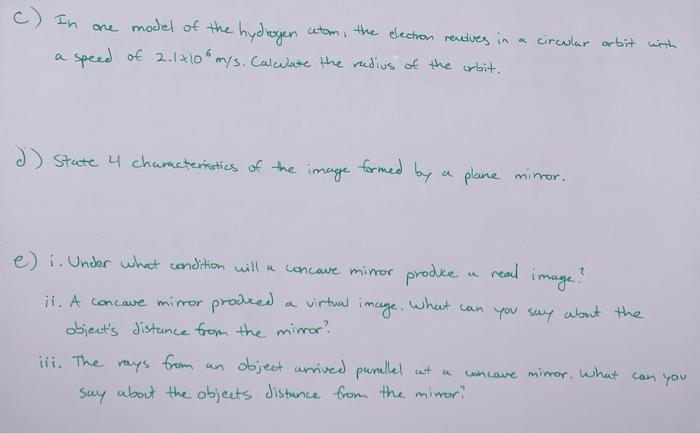 c) In one model of the hydrogen atom, the electron revolves in a circular orbit with
a speed of 2.1x10⁶ m/s. Calculate the radius of the orbit.
d) State 4 characteristics of the image formed by a plane mirror.
e) i. Under what condition will a concave mirror produce a real image?
ii. A concave mirror produced a virtual image. What can you say about the
object's distance from the mirror?
iii. The rays from an object arrived parallel at a concave mirror. What can you
say about the objects distance from the mirror?